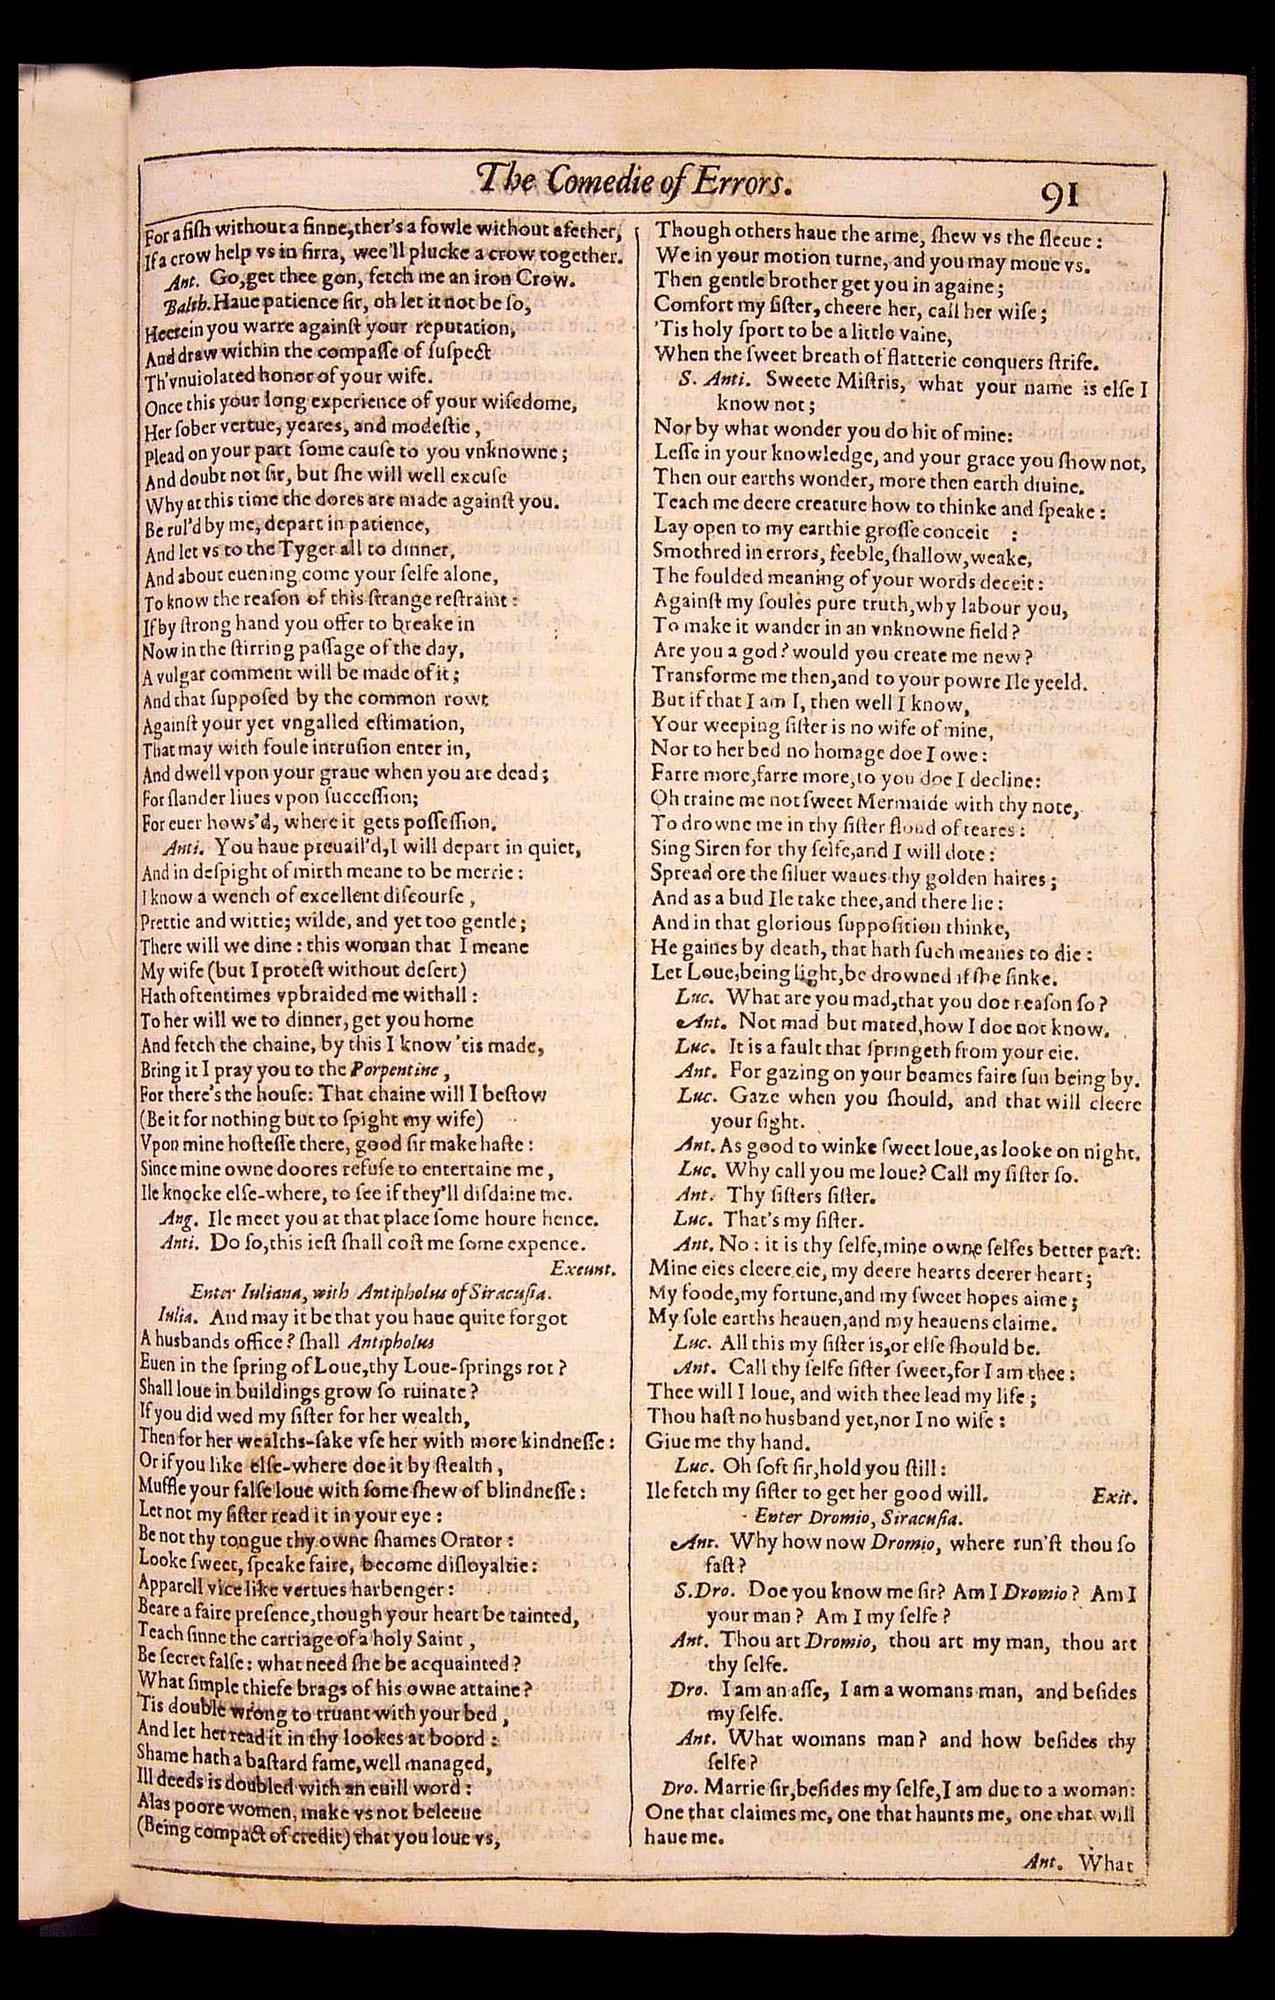 The Comedie of Errors.
91
For a fiſh without a finne, ther's a fowle without a fether,
If a crow help vs in ſirra, wee'll plucke a crow together.
Ant. Go, get thee gon, fetch me an iron Crow.
Balth. Haue patience ſir, oh let it not be ſo,
Heerein you warre againſt your reputation,
And draw within the compaſſe of ſuſpect
Th'vnuiolated honor of your wife.
Once this your long experience of your wiſedome,
Her ſober vertue, yeares, and modeſtie,
Plead on your part ſome cauſe to you vnknowne;
And doubt not ſir, but ſhe will well excuſe
Why at this time the dores are made againſt you.
Be rul'd by me, depart in patience,
And let vs to the Tyger all to dinner,
And about euening come your ſelfe alone,
To know the reaſon of this ſtrange reſtraint:
If by ſtrong hand you offer to breake in
Now in the ſtirring paſſage of the day,
A vulgar comment will be made of it;
And that ſuppoſed by the common rowt
Againſt your yet vngalled eſtimation,
That may with foule intruſion enter in,
And dwell vpon your graue when you are dead;
For ſlander liues vpon ſucceſſion;
For euer hows'd, where it gets poſſeſſion.
Anti. You haue preuail'd, I will depart in quiet,
And in deſpight of mirth meane to be merrie:
I know a wench of excellent diſcourſe,
Prettie and wittie; wilde, and yet too gentle;
There will we dine: this woman that I meane
My wife (but I proteſt without deſert)
Hath oftentimes vpbraided me withall:
To her will we to dinner, get you home
And fetch the chaine, by this I know 'tis made,
Bring it I pray you to the Porpentine,
For there's the houſe: That chaine will I beſtow
(Be it for nothing but to ſpight my wife)
Vpon mine hoſteſſe there, good ſir make haſte:
Since mine owne doores refuſe to entertaine me,
Ile knocke elſe-where, to ſee if they'll diſdaine me.
Ang. Ile meet you at that place ſome houre hence.
Anti. Do ſo, this ieſt ſhall coſt me ſome expence.
Exeunt.
Enter Iuliana, with Antipholus of Siracuſia.
Iulia. And may it be that you haue quite forgot
A husbands office? ſhall Antipholus
Euen in the ſpring of Loue, thy Loue-ſprings rot?
Shall loue in buildings grow ſo ruinate?
If you did wed my ſiſter for her wealth,
Then for her wealths-ſake vſe her with more kindneſſe:
Or if you like elſe-where doe it by ſtealth,
Muffle your falſe loue with ſome ſhew of blindneſſe:
Let not my ſiſter read it in your eye:
Be not thy tongue thy owne ſhames Orator:
Looke ſweet, ſpeake faire, become diſloyaltie:
Apparell vice like vertues harbenger:
Beare a faire preſence, though your heart be tainted,
Teach ſinne the carriage of a holy Saint,
Be ſecret falſe: what need ſhe be acquainted?
What ſimple thiefe brags of his owne attaine?
'Tis double wrong to truant with your bed,
And let her read it in thy lookes at boord:
Shame hath a baſtard fame, well managed,
Ill deeds is doubled with an euill word:
Alas poore women, make vs not beleeue
(Being compact of credit) that you loue vs,
Though others haue the arme, ſhew vs the ſleeue:
We in your motion turne, and you may moue vs.
Then gentle brother get you in againe;
Comfort my ſiſter, cheere her, call her wife;
'Tis holy ſport to be a little vaine,
When the ſweet breath of flatterie conquers ſtrife.
S. Anti. Sweete Miſtris, what your name is elſe I
know not;
Nor by what wonder you do hit of mine:
Leſſe in your knowledge, and your grace you ſhow not,
Then our earths wonder, more then earth diuine.
Teach me deere creature how to thinke and ſpeake:
Lay open to my earthie groſſe conceit :
Smothred in errors, feeble, ſhallow, weake,
The foulded meaning of your words deceit:
Againſt my ſoules pure truth, why labour you,
To make it wander in an vnknowne field?
Are you a god? would you create me new?
Transforme me then, and to your powre Ile yeeld.
But if that I am I, then well I know,
Your weeping ſiſter is no wife of mine,
Nor to her bed no homage doe I owe:
Farre more, farre more, to you doe I decline:
Oh traine me not ſweet Mermaide with thy note,
To drowne me in thy ſiſter floud of teares:
Sing Siren for thy ſelfe, and I will dote:
Spread ore the ſiluer waues thy golden haires;
And as a bud Ile take thee, and there lie:
And in that glorious ſuppoſition thinke,
He gaines by death, that hath ſuch meanes to die:
Let Loue, being light, be drowned if ſhe ſinke.
Luc. What are you mad, that you doe reaſon ſo?
Ant. Not mad but mated, how I doe not know.
Luc. It is a fault that ſpringeth from your eie.
Ant. For gazing on your beames faire ſun being by.
Luc. Gaze when you ſhould, and that will cleere
your ſight.
Ant. As good to winke ſweet loue, as looke on night.
Luc. Why call you me loue? Call my ſiſter ſo.
Ant. Thy ſiſters ſiſter.
Luc. That's my ſiſter.
Ant. No: it is thy ſelfe, mine owne ſelfes better part:
Mine eies cleere eie, my deere hearts deerer heart;
My foode, my fortune, and my ſweet hopes aime;
My ſole earths heauen, and my heauens claime.
Luc. All this my ſiſter is, or elſe ſhould be.
Ant. Call thy ſelfe ſiſter ſweet, for I am thee:
Thee will I loue, and with thee lead my life;
Thou haſt no husband yet, nor I no wife:
Giue me thy hand.
Luc. Oh ſoft ſir, hold you ſtill:
Ile fetch my ſiſter to get her good will. Exit.
Enter Dromio, Siracuſia.
Ant. Why how now Dromio, where run'ſt thou ſo
faſt?
S.Dro. Doe you know me ſir? Am I Dromio? Am I
your man? Am I my ſelfe?
Ant. Thou art Dromio, thou art my man, thou art
thy ſelfe.
Dro. I am an aſſe, I am a womans man, and beſides
my ſelfe.
Ant. What womans man? and how beſides thy
ſelfe?
Dro. Marrie ſir, beſides my ſelfe, I am due to a woman:
One that claimes me, one that haunts me, one that will
haue me.
Ant. What